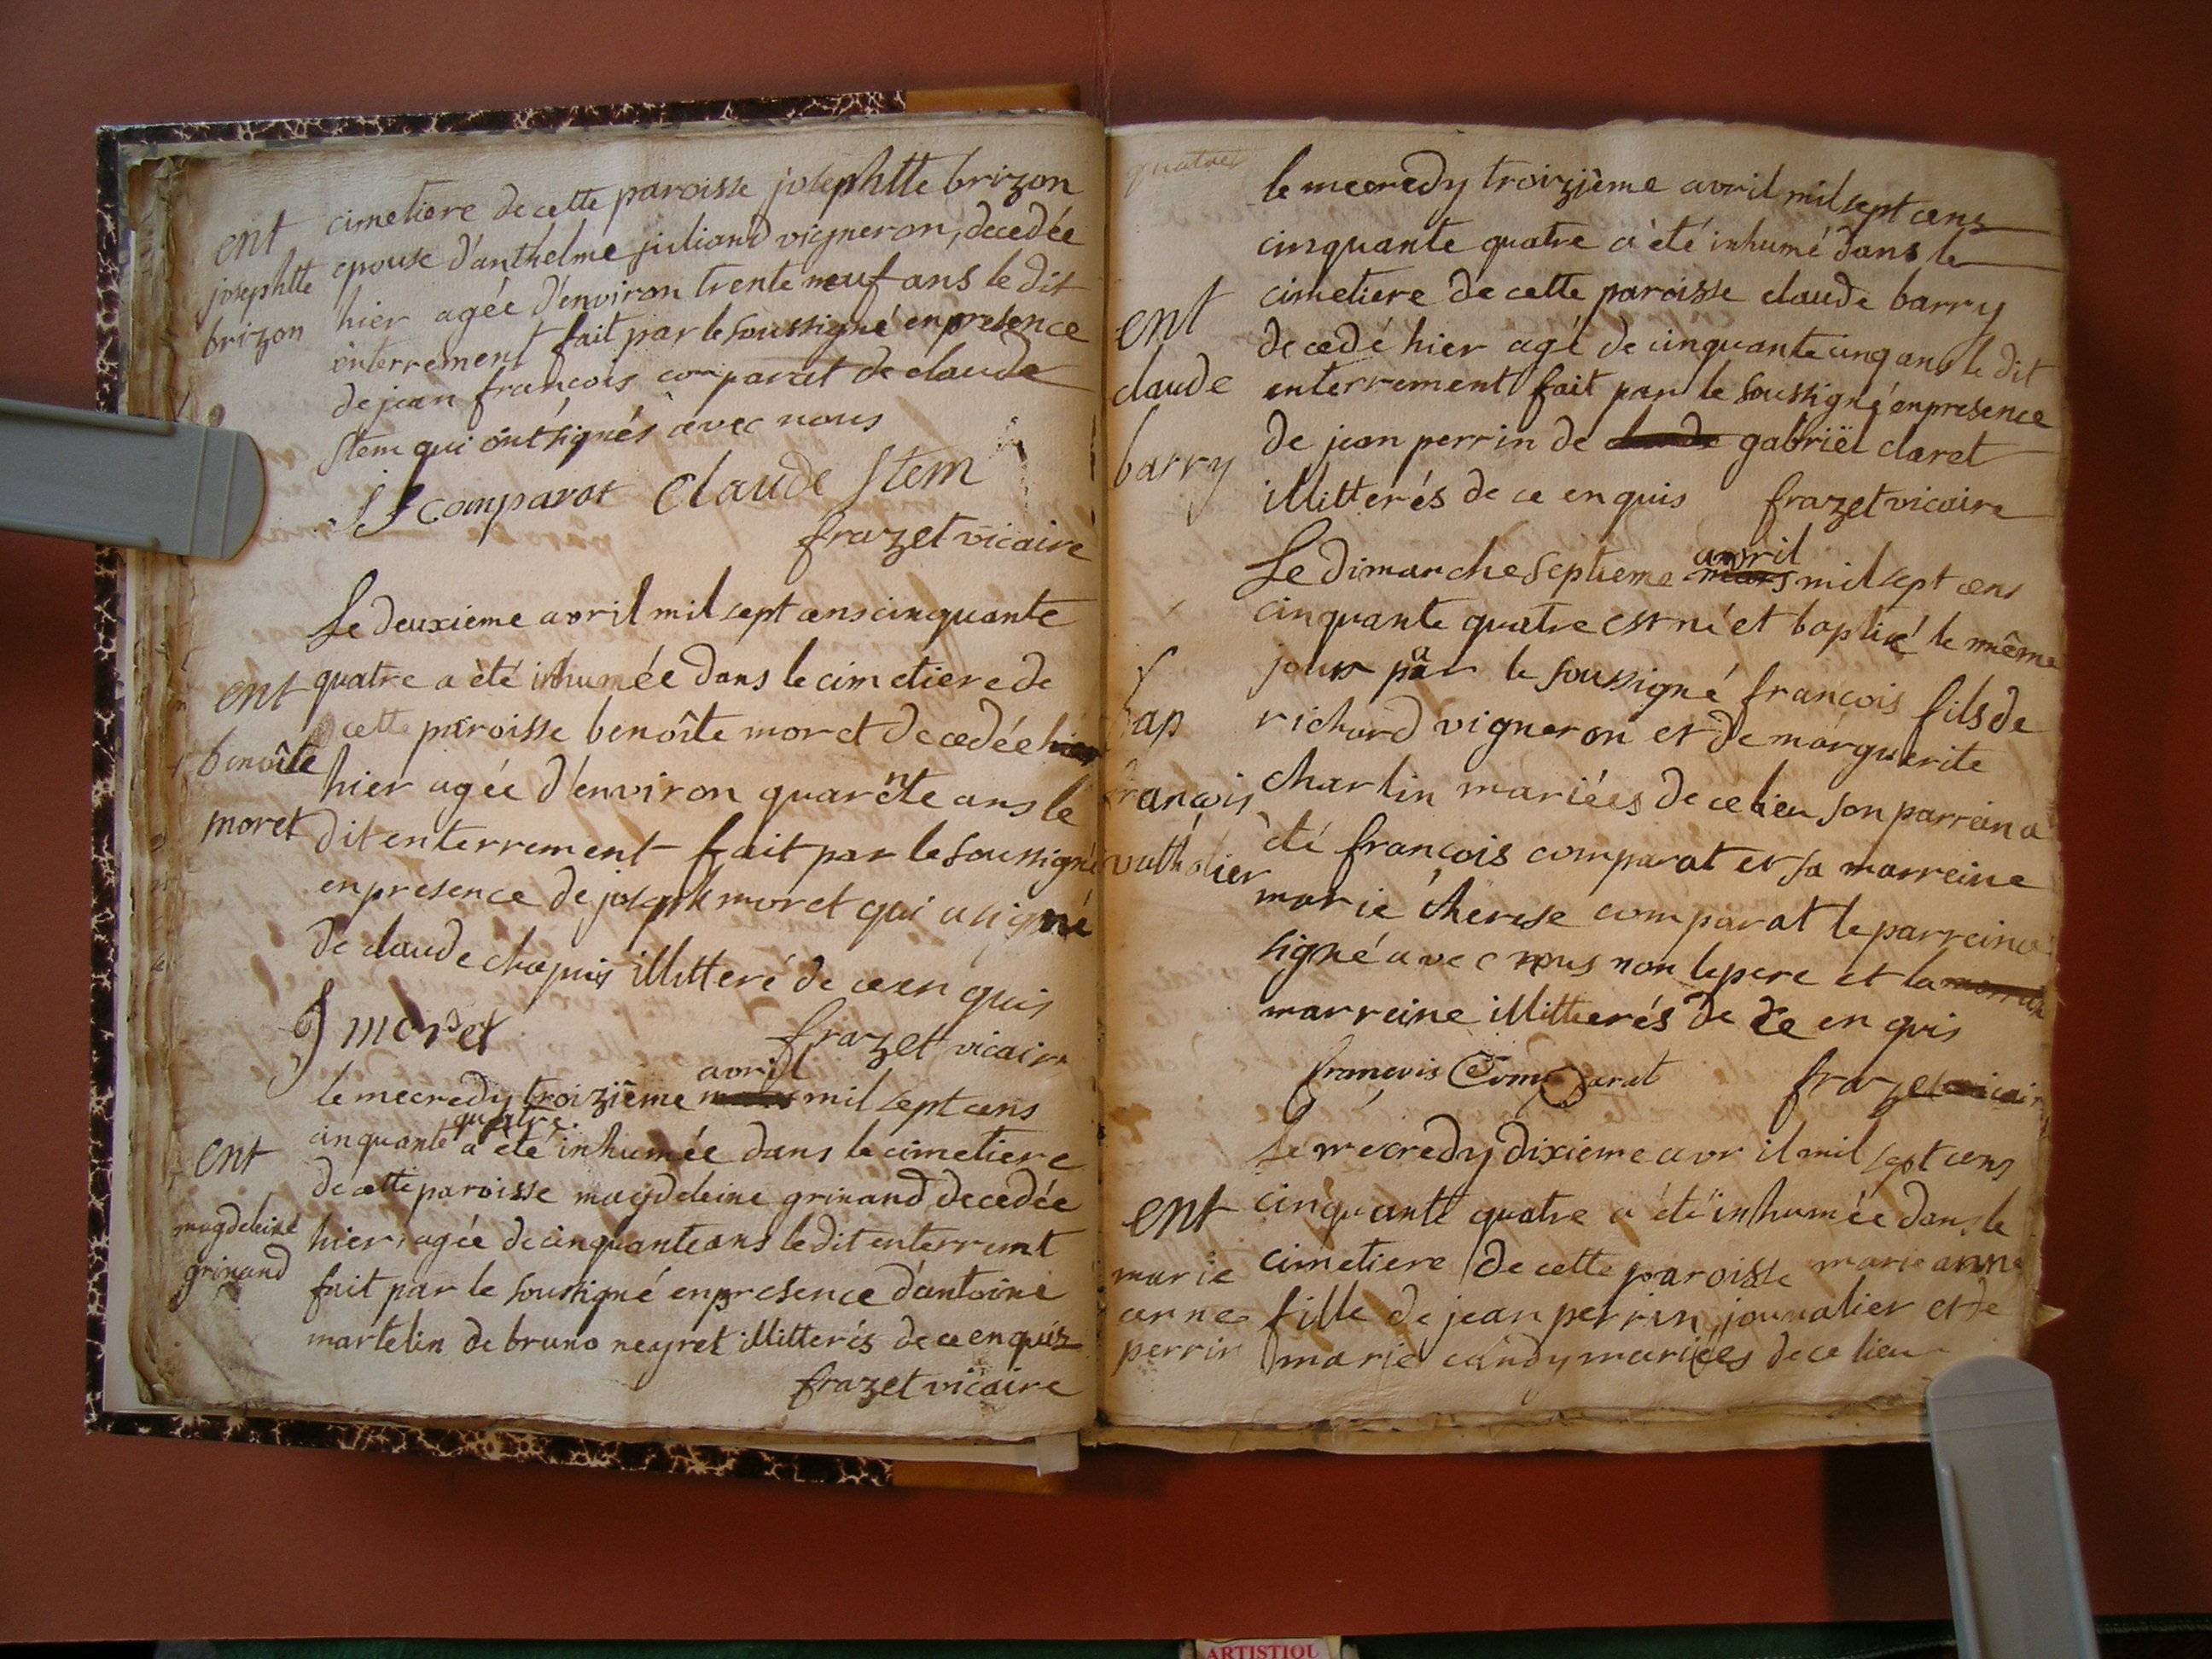 ent
josephtte
brizon
cimetiere de cette paroisse josephtte brizon
epouse d'anthelme juliand vigneron, decedée
hier agée d'environ trente neuf ans le dit
enterrement fait par le soussigné en presence
de jean françois comparat de claude
stem qui ont signés avec nous
J F comparat Claude Stem
frazet vicaire
ent
benoîte
moret
Le deuxieme avril mil sept cens cinquante
quatre a été inhumée dans le cimetiere de
cette paroisse benoîte moret decedée hier
hier agée d'environ quarente ans le
dit enterrement fait par le soussigné
en presence de joseph moret qui a signé
de claude chapuis illitteré de ce en quis
J moret
frazet vicaire
ent
magdeleine
grinand
le mecredy troizième mars avril mil sept cens
cinquante quatre a été inhumée dans le cimetiere
de cette paroisse magdeleine grinand decedée
hier, agée de cinquante ans le dit enterremt
fait par le soussigné en presence d'antoine
martelin de bruno neyret illitterés de ce en quis
frazet vicaire
quatre
ent
claude
barry
le mecredy troizième avril mil sept cens
cinquante quatre a été inhumé dans le
cimetiere de cette paroisse claude barry
decedé hier agé de cinquante cinq ans le dit
enterrement fait par le soussigné en presence
de jean perrin de claude gabriël claret
illitterés de ce en quis frazet vicaire
bap
françois
Le dimanche septieme mars avril mil sept cens
cinquante quatre est né et baptisé le même
jour par le soussigné françois fils de
richard vigneron et de marguerite
charlin mariées de ce lieu son parrein a
été françois comparat et sa marreine
marie therese comparat le parrein a
signé avec nous non le pere et la marreine
marreine illitterés de ce en quis
françois Comparat frazet vicaire
ent
marie
anne
perrin
Le mecredy dixieme avril mil sept cens
cinquante quatre a été inhumée dans le
cimetiere de cette paroisse marie anne
fille de jean perrin, journalier et de
marie candy mariées de ce lieu
ARTISTIQU